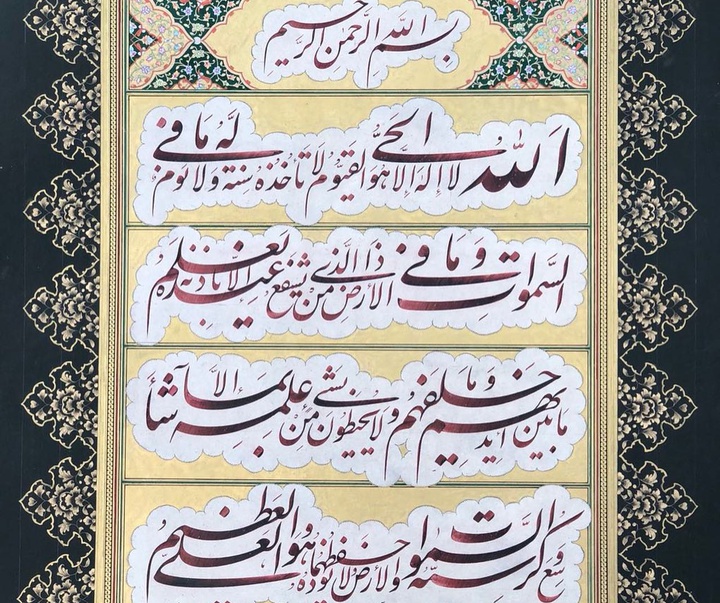 بسم الله الرحمن الرحیم
الله لا اله الا هو الحی القیوم لا تأخذه سنة ولا نوم له ما فی
السموات و ما فی الارض من ذا الذی یشفع عنده الا باذنه یعلم
ما بین ایدیهم و ما خلفهم ولا یحیطون بشیء من علمه الا بما شآء
وسع کرسیه السموات والارض ولا یؤده حفظهما و هو العلی العظیم